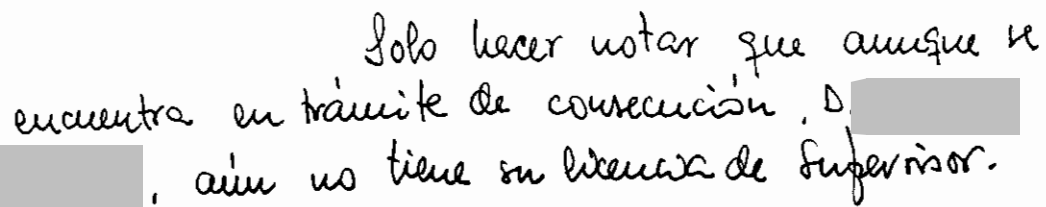 Solo hacer notar que aunque se
encuentra en trámite de consecución, D.
, aún no tiene su licencia de Supervisor.